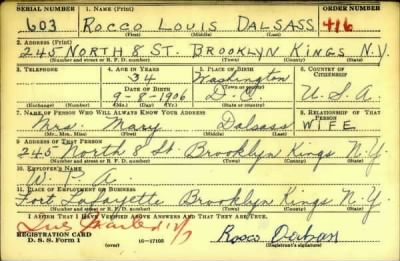 SERIAL NUMBER 1. NAME (Print) ORDER NUMBER
603 ROCCO LOUIS DALSASS 416
(First) (Middle) (Last)
2. ADDRESS (Print)
245 NORTH 8 ST. BROOKLYN KINGS N.Y.
(Number and street or R. F. D. number) (Town) (County) (State)
3. TELEPHONE 4. AGE IN YEARS 5. PLACE OF BIRTH 6. COUNTRY OF CITIZENSHIP
34 Washington
DATE OF BIRTH (Town or county)
9-8-1906 D.C. U.S.A.
(Exchange) (Number) (Mo.) (Day) (Yr.) (State or country)
7. NAME OF PERSON WHO WILL ALWAYS KNOW YOUR ADDRESS 8. RELATIONSHIP OF THAT PERSON
Mrs. Mary Dalsass WIFE
(Mr., Mrs., Miss) (First) (Middle) (Last)
9. ADDRESS OF THAT PERSON
245 North 8 St. Brooklyn Kings N.Y.
(Number and street or R. F. D. number) (Town) (County) (State)
10. EMPLOYER'S NAME
W.P.A.
11. PLACE OF EMPLOYMENT OR BUSINESS
Fort Lafayette Brooklyn Kings N.Y.
(Number and street or R. F. D. number) (Town) (County) (State)
I AFFIRM THAT I HAVE VERIFIED ABOVE ANSWERS AND THAT THEY ARE TRUE.
REGISTRATION CARD
D. S. S. Form 1 (over) 16—17105 (Registrant's signature)